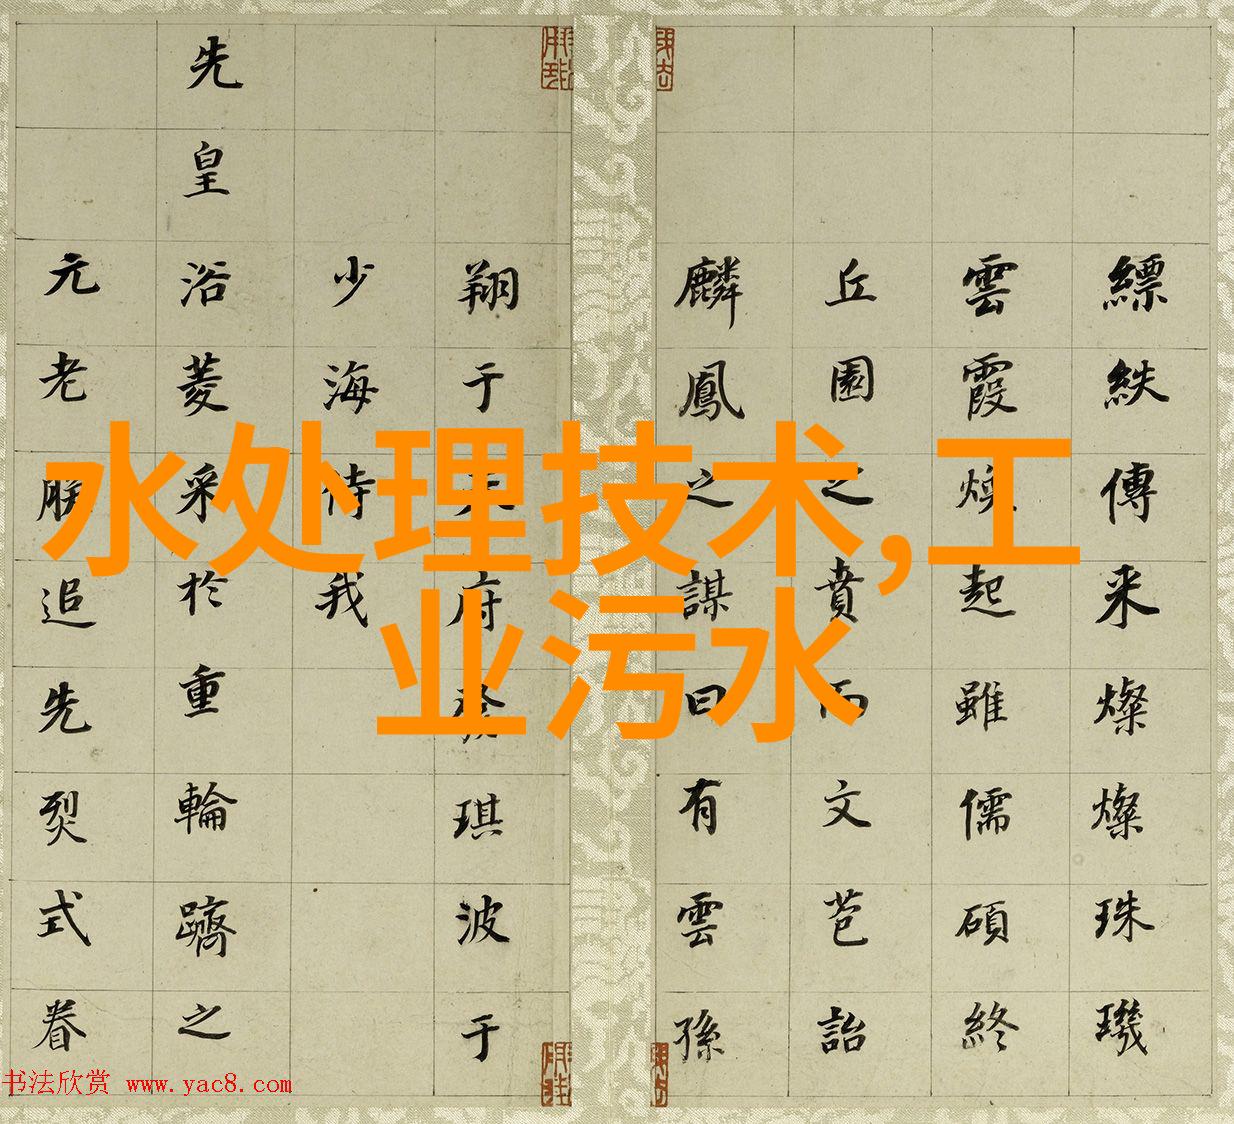 水处理技术,工
业污水
縹紩傳来燦燦珠璣
雲霞煥起雖儒碩終
丘園之賁而文苑詒
麟鳳之謀曰有雲孫
翔于天府發琪波于
少海侍我
先皇浴菱采於重輪躋之
元老朕追先烈式眷
书法欣赏 www.yac8.com